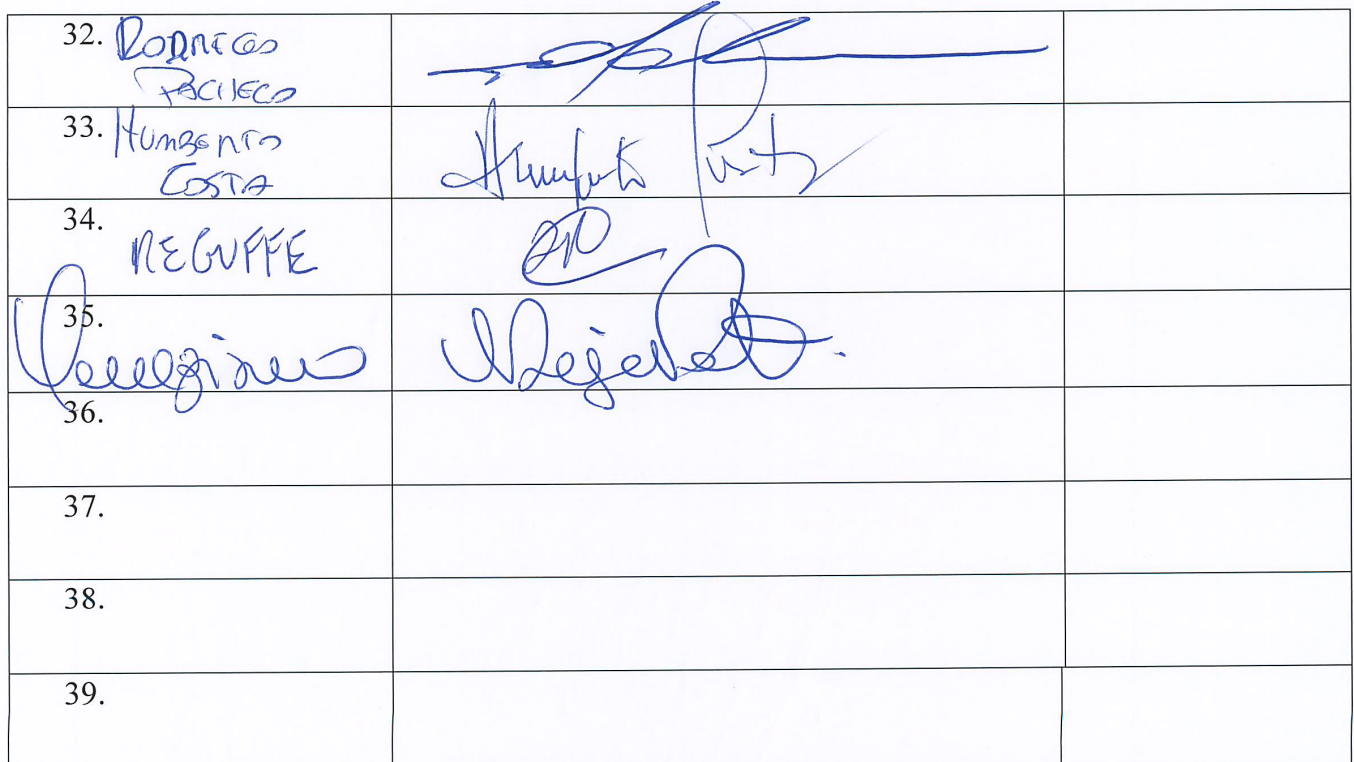 32. RODRIGO
PACHECO
33. HUMBERTO
COSTA
Humberto Costa
34.
REGUFFE
35.
Veneziano
36.
37.
38.
39.